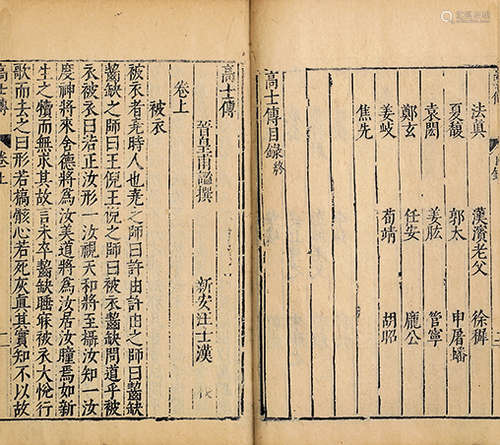 法真 漢濱老父 徐穉
夏馥 郭太 申屠蟠
袁閎 姜肱 管寧
鄭玄 任安 龐公
姜岐 荀靖 胡昭
焦先
高士傳目錄終
高士傳
晉皇甫謐撰 新安汪士漢
卷上
被衣
被衣者堯時人也堯之師曰許由許由之師曰齧缺
齧缺之師曰王倪王倪之師曰被衣齧缺問道乎被
衣被衣曰若正汝形一汝視天和將至攝汝知一汝
度神將來舍德將為汝美道將為汝居汝瞳焉如新
生之犢而無求其故言未卒齧缺睡寐被衣大悅行
歌而去之曰形若槁骸心若死灰真其實知不以故
高士傳 卷上 一